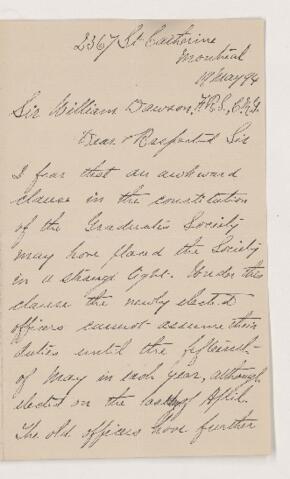 2367 St Catherine
Montreal
May 94
Sir William Dawson, F.R.S., C.M.G.
Dear & Respected Sir
I fear that an awkward
clause in the constitution
of the Graduates Society
may have placed the Society
in a strange light. Under this
clause the newly elected
officers cannot assume their
duties until the fifteenth
of May in each year, although
elected on the of April.
The old officers have further